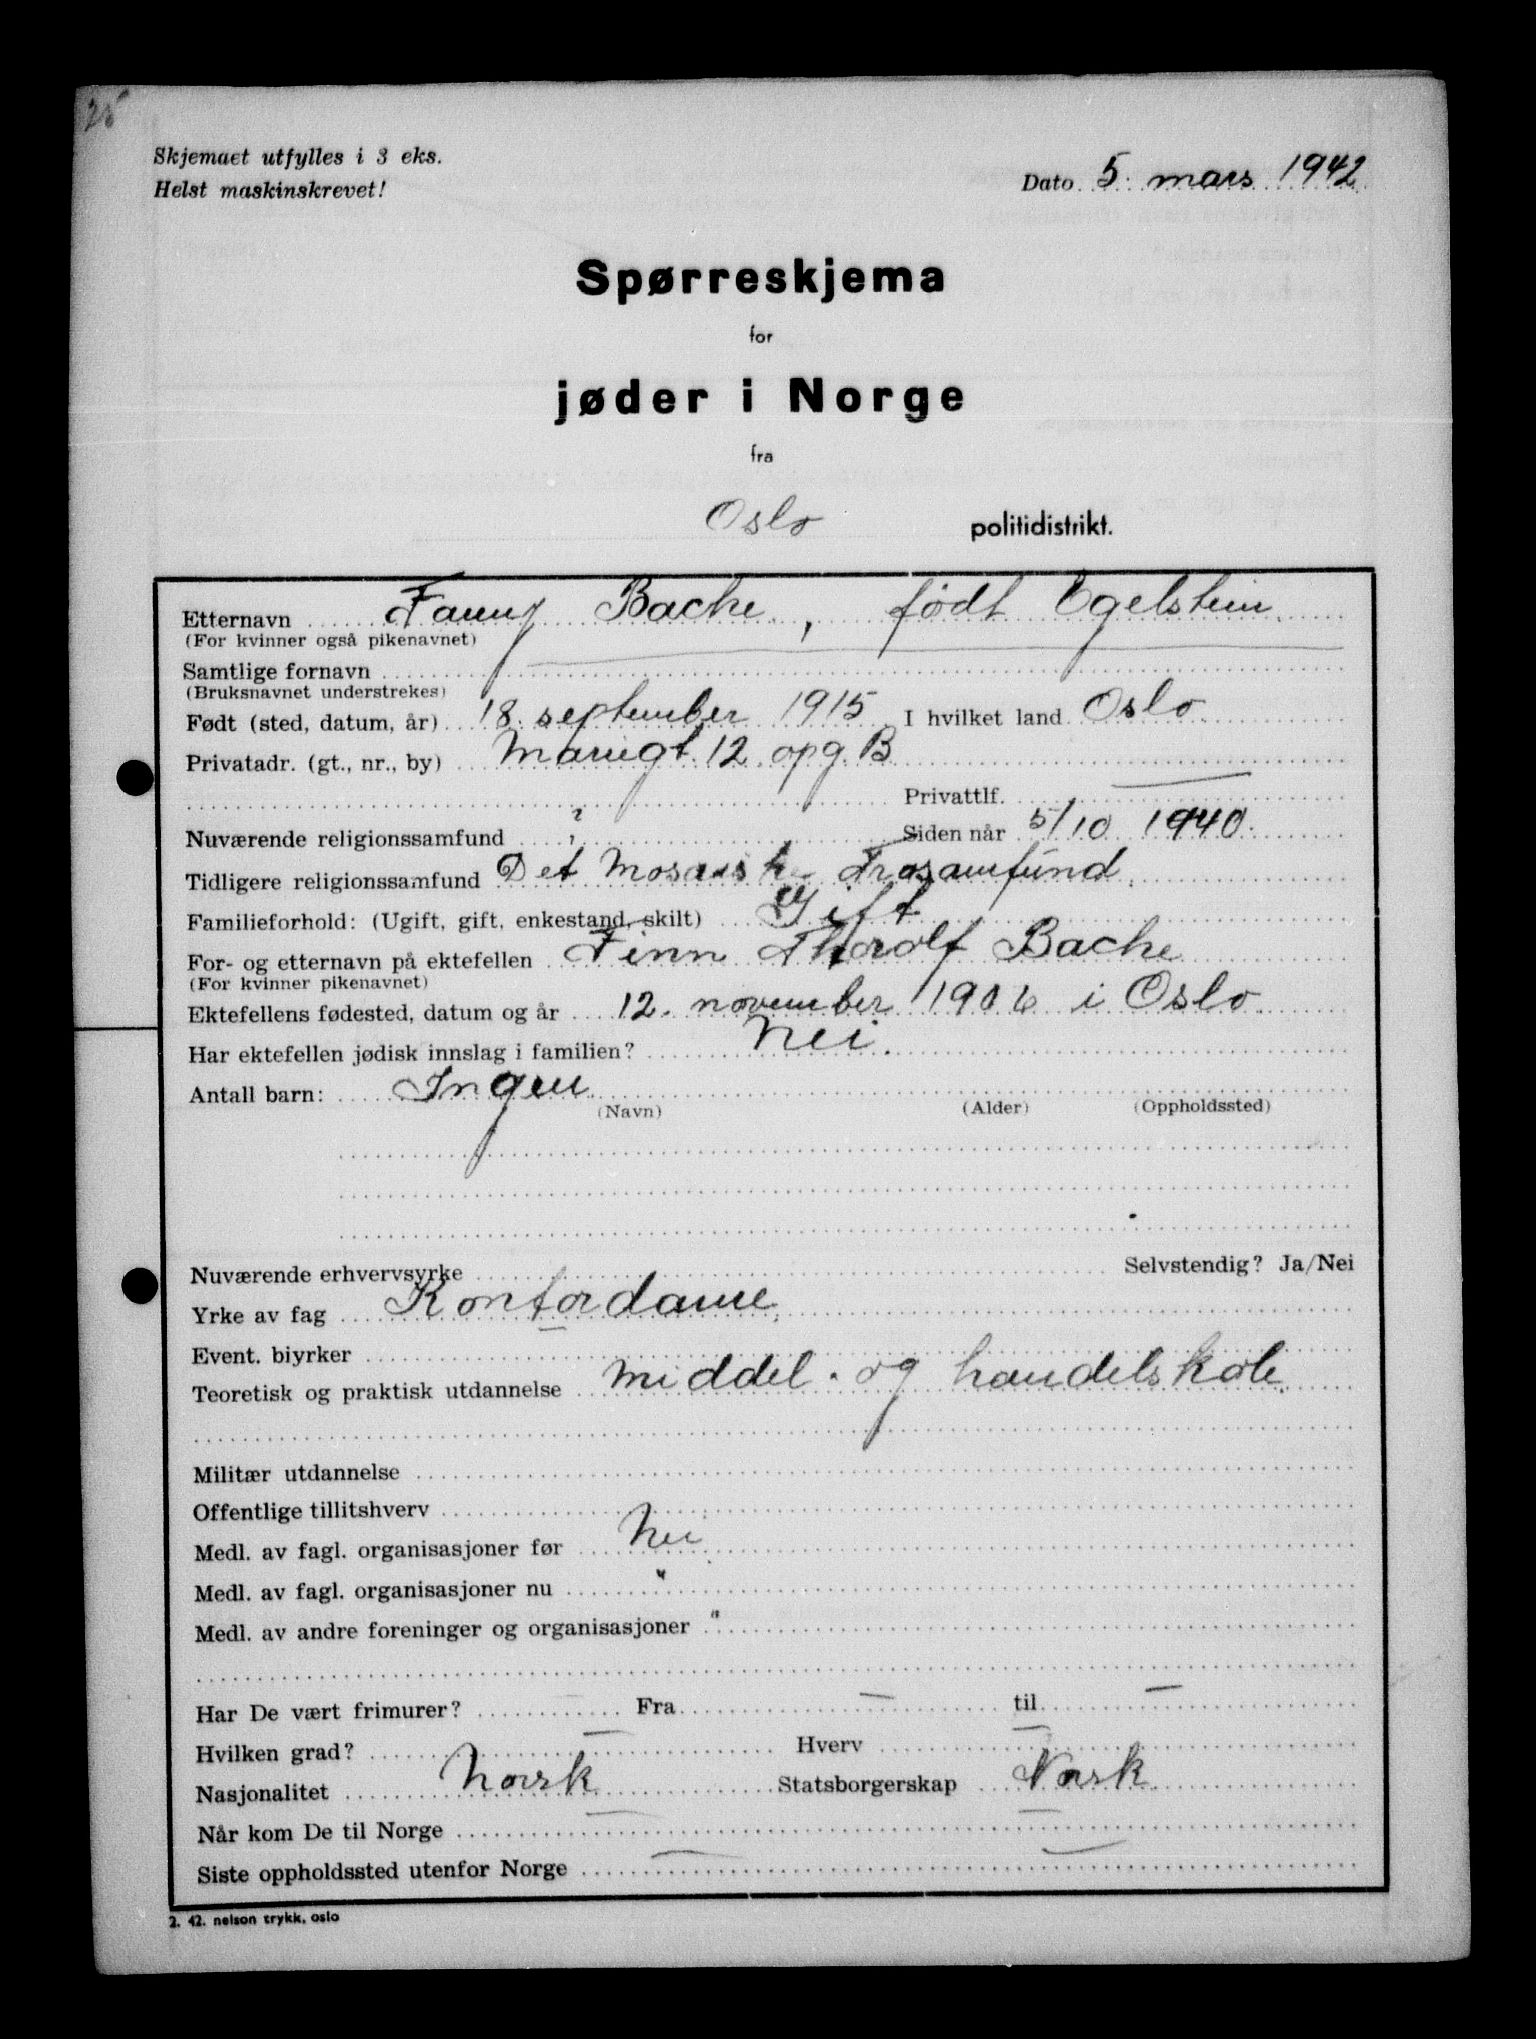 25
Skjemaet utfylles i 3 eks.
Helst maskinskrevet!
Dato 5. mars 1942
Spørreskjema
for
jøder i Norge
fra
Oslo politidistrikt.
Etternavn Fanny Bache, født Egelstein.
(For kvinner også pikenavnet)
Samtlige fornavn
(Bruksnavnet understrekes)
Født (sted, datum, år) 18. september 1915 I hvilket land Oslo
Privatadr. (gt., nr., by) Mariegt. 12 opg. B
Privattlf. —
Nuværende religionssamfund ? Siden når 5/10 1940.
Tidligere religionssamfund Det Mosaiske Trosamfund.
Familieforhold: (Ugift, gift, enkestand, skilt) Gift
For- og etternavn på ektefellen Finn Thorolf Bache
(For kvinner pikenavnet)
Ektefellens fødested, datum og år 12. november 1906 i Oslo.
Har ektefellen jødisk innslag i familien? Nei.
Antall barn: Ingen
(Navn) (Alder) (Oppholdssted)
Nuværende erhvervsyrke Selvstendig? Ja/Nei
Yrke av fag Kontordame,
Event. biyrker —
Teoretisk og praktisk utdannelse Middel- og handelskole.
Militær utdannelse
Offentlige tillitshverv
Medl. av fagl. organisasjoner før Nei
Medl. av fagl. organisasjoner nu "
Medl. av andre foreninger og organisasjoner "
Har De vært frimurer? Fra — til —
Hvilken grad? — Hverv —
Nasjonalitet Norsk Statsborgerskap Norsk
Når kom De til Norge — —
Siste oppholdssted utenfor Norge — —
2. 42. nelson trykk, oslo